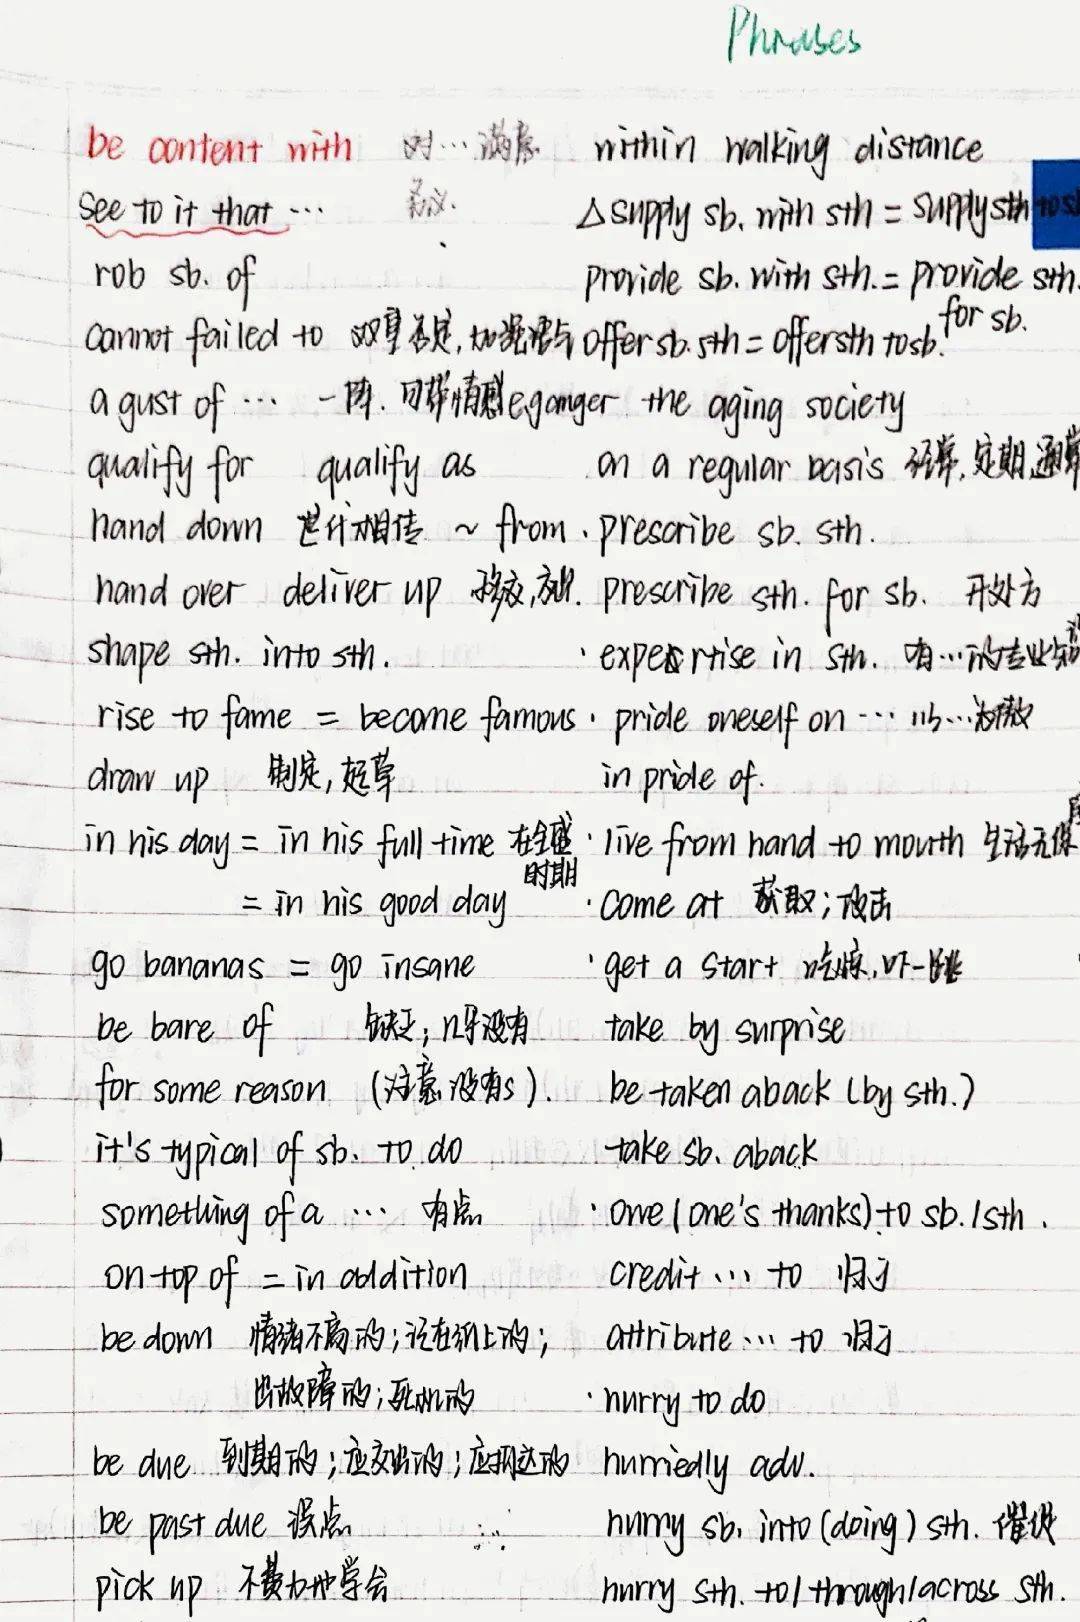 Phrases
be content with 对…满意
see to it that …
rob sb. of
cannot failed to 双重否定,加强语气
a gust of … 一阵. 可带情感 e.g anger
qualify for qualify as
hand down 世代相传 ~ from
hand over deliver up 移交,
shape sth. into sth.
rise to fame = become famous
draw up 制定,起草
in his day = in his full time 在全盛时期
= in his good day
go bananas = go insane
be bare of 缺乏; 几乎没有
for some reason (注意没有s).
it's typical of sb. to do
something of a … 有点
on top of = in addition
be down 情绪不高的;记在纸上的;
出故障的;死机的
be due 到期的;应交出的;应抵达的
be past due 误点
pick up 不费力地学会
within walking distance
△ supply sb. with sth = supply sth to sb
provide sb. with sth. = provide sth.
for sb.
offer sb. sth = offer sth to sb.
the aging society
on a regular basis 经常,定期,通常
· prescribe sb. sth.
prescribe sth. for sb. 开处方
· expertise in sth. 有…的专业知识
· pride oneself on … 以…为傲
in pride of.
· live from hand to mouth 生活无保
· come at 获取;攻击
· get a start 吃惊,吓一跳
take by surprise
be taken aback (by sth.)
take sb. aback
· owe (one's thanks) to sb. / sth.
credit … to 归于
attribute … to 归于
· hurry to do
hurriedly adv.
hurry sb. into (doing) sth. 催促
hurry sth. to / through / across sth.